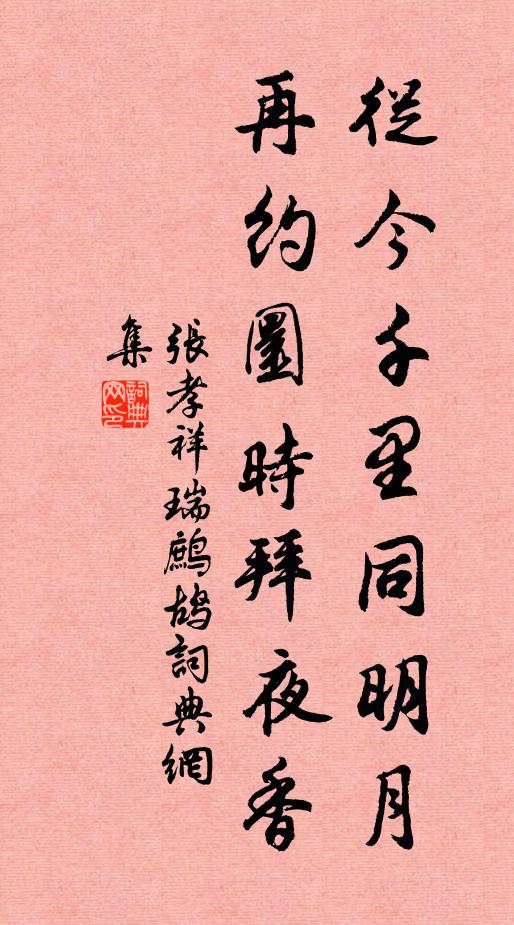 從今千里同明月
再約圓時拜夜香
張孝祥瑞鷓鴣詞典網
集
詞典
網印